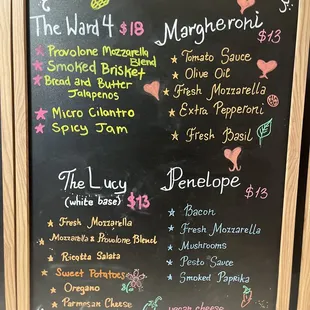 The Ward 4 $18
Provolone Mozzarella
Blend
Smoked Brisket
Bread and Butter
Jalapenos
Micro Cilantro
Spicy Jam
Margheroni
$13
Tomato Sauce
Olive Oil
Fresh Mozzarella
Extra Pepperoni
Fresh Basil
The Lucy
(white base) $13
Fresh Mozzarella
Mozzarella & Provolone Blend
Ricotta Salata
Sweet Potatoes
Oregano
Parmesan Cheese
Penelope
$13
Bacon
Fresh Mozzarella
Mushrooms
Pesto Sauce
Smoked Paprika
vegan cheese